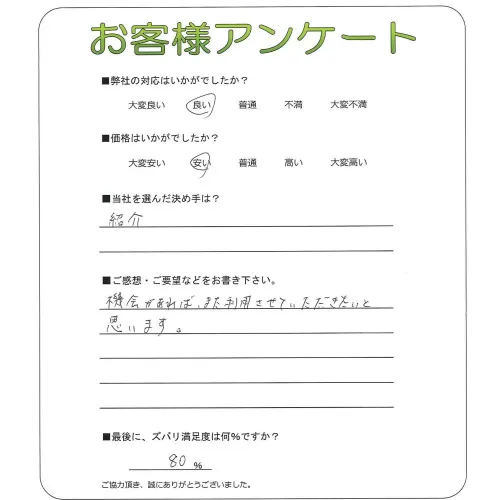 お客様アンケート
■弊社の対応はいかがでしたか?
大変良い 良い 普通 不満 大変不満
■価格はいかがでしたか?
大変安い 安い 普通 高い 大変高い
■当社を選んだ決め手は?
紹介
■ご感想・ご要望などをお書き下さい。
機会があれば、また利用させていただきたいと
思います。
■最後に、ズバリ満足度は何%ですか?
80 %
ご協力頂き、誠にありがとうございました。